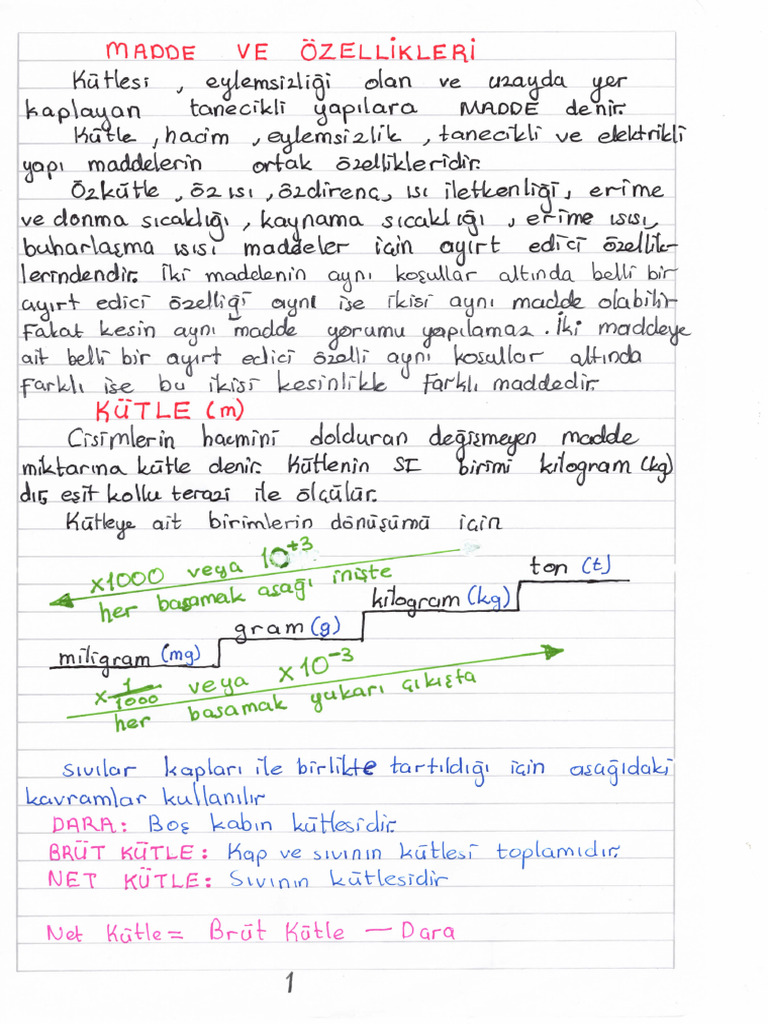 MADDE VE ÖZELLİKLERİ
Kütlesi , eylemsizliği olan ve uzayda yer
kaplayan tanecikli yapılara MADDE denir.
Kütle , hacim , eylemsizlik , tanecikli ve elektrikli
yapı maddelerin ortak özellikleridir.
Özkütle , öz ısı , özdirenç, ısı iletkenliği, erime
ve donma sıcaklığı , kaynama sıcaklığı , erime ısısı,
buharlaşma ısısı maddeler için ayırt edici özellik-
lerindendir. İki maddenin aynı koşullar altında belli bir
ayırt edici özelliği aynı ise ikisi aynı madde olabilir
Fakat kesin aynı madde yorumu yapılamaz . İki maddeye
ait belli bir ayırt edici özelli aynı koşullar altında
farklı ise bu ikisi kesinlikle farklı maddedir.
KÜTLE (m)
Cisimlerin hacmini dolduran değişmeyen madde
miktarına kütle denir. Kütlenin SI birimi kilogram (kg)
dır, eşit kollu terazi ile ölçülür.
Kütleye ait birimlerin dönüşümü için
x1000 veya 10⁺³
her basamak aşağı inişte
ton (t)
kilogram (kg)
gram (g)
miligram (mg)
x 1/1000 veya x10⁻³
her basamak yukarı çıkışta
Sıvılar kapları ile birlikte tartıldığı için aşağıdaki
kavramlar kullanılır
DARA: Boş kabın kütlesidir.
BRÜT KÜTLE: Kap ve sıvının kütlesi toplamıdır.
NET KÜTLE: Sıvının kütlesidir
Net Kütle = Brüt Kütle — Dara
1